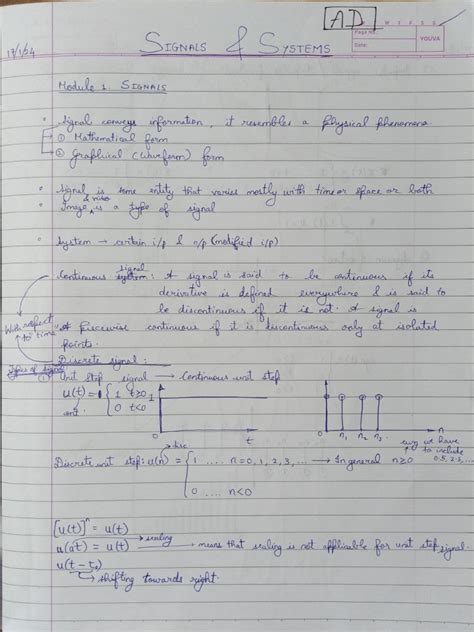 AD
M T W T F S S
Page No.:
Date:
YOUVA
SIGNALS & SYSTEMS
Module 1. SIGNALS
• Signal conveys information, it resembles a Physical phenomena
① Mathematical form
② Graphical (waveform) form
• Signal is some entity that varies mostly with time or space or both
• Image & video is a type of signal
• System → certain i/p & o/p (modified i/p)
• Continuous signal system: A signal is said to be continuous if its
derivative is defined everywhere & is said to
be discontinuous if it is not. A signal is
With respect to time
A Piecewise continuous if it is discontinuous only at isolated
points.
Discrete signal:
Types of Signal
(1) Unit step signal → Continuous unit step
u(t) = { 1 t≥0
0 t<0
unit
1
t
0 n₁ n₂ n₃ n
we have
to include
0.5, 2.3, ...
disc
Discrete unit step: u(n) = { 1 .... n=0, 1, 2, 3, ... → In general n≥0
0 .... n<0
[u(t)]ⁿ = u(t)
u(at) = u(t) → scaling → means that scaling is not applicable for unit step signal.
u(t-t₀)
↳ shifting towards right.